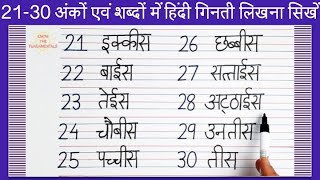 21-30 अंकों एवं शब्दों में हिंदी गिनती लिखना सिखें
21 इक्कीस 26 छब्बीस
22 बाईस 27 सत्ताईस
23 तेईस 28 अट्ठाईस
24 चौबीस 29 उनतीस
25 पच्चीस 30 तीस